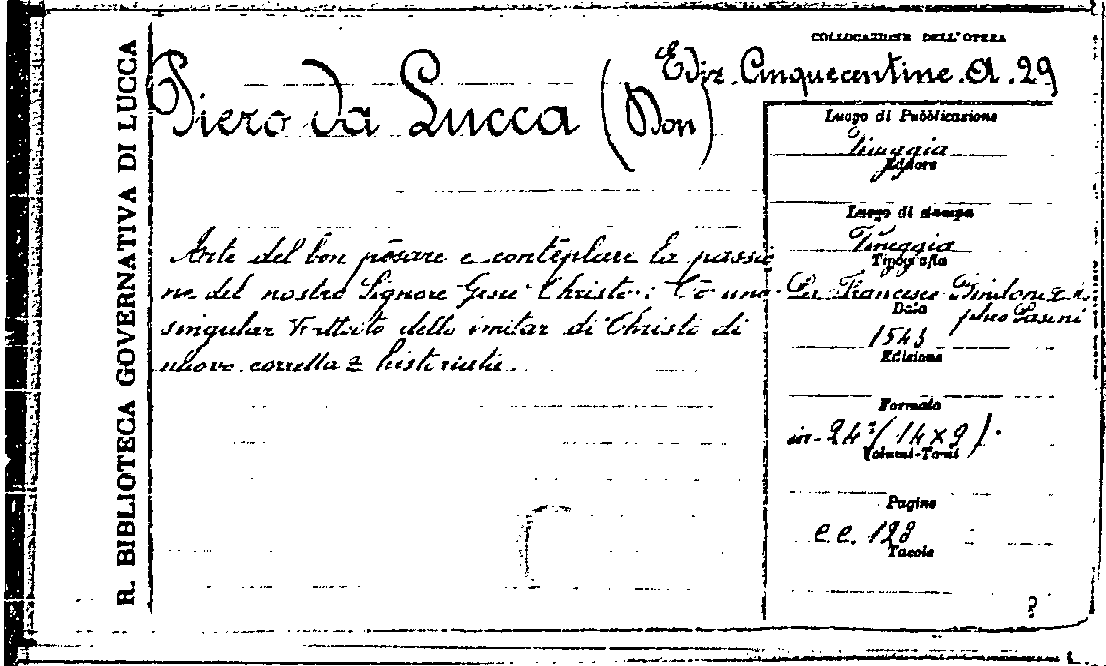 R. BIBLIOTECA GOVERNATIVA DI LUCCA
COLLOCAZIONE DELL'OPERA
Ediz. Cinquecentine. A. 29
Piero da Lucca (Don)
Arte del bon pēsare e contēplare la passio
ne del nostro Signore Gesù Christo: Cō uno
singular trattato dello imitar di Christo di
nuovo corretta z historiata.
Luogo di Pubblicazione
Vineggia
Editore
Luogo di stampa
Vineggia
Tipografia
Per Francesco Bindoni z
pheo Pasini
Data
1543
Edizione
Formato
in-24° (14x9).
Volumi-Tomi
Pagine
c.c. 128
Tavole